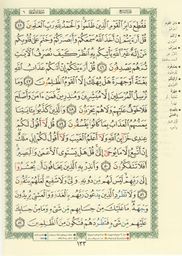 فَقُطِعَ دَابِرُ ٱلْقَوْمِ ٱلَّذِينَ ظَلَمُوا۟ وَٱلْحَمْدُ لِلَّهِ رَبِّ ٱلْعَٰلَمِينَ
قُلْ أَرَءَيْتُمْ إِنْ أَخَذَ ٱللَّهُ سَمْعَكُمْ وَأَبْصَٰرَكُمْ وَخَتَمَ عَلَىٰ قُلُوبِكُم
مَّنْ إِلَٰهٌ غَيْرُ ٱللَّهِ يَأْتِيكُم بِهِ ٱنظُرْ كَيْفَ نُصَرِّفُ ٱلْءَايَٰتِ
ثُمَّ هُمْ يَصْدِفُونَ قُلْ أَرَءَيْتَكُمْ إِنْ أَتَىٰكُمْ عَذَابُ ٱللَّهِ
بَغْتَةً أَوْ جَهْرَةً هَلْ يُهْلَكُ إِلَّا ٱلْقَوْمُ ٱلظَّٰلِمُونَ وَمَا
نُرْسِلُ ٱلْمُرْسَلِينَ إِلَّا مُبَشِّرِينَ وَمُنذِرِينَ فَمَنْ ءَامَنَ وَأَصْلَحَ
فَلَا خَوْفٌ عَلَيْهِمْ وَلَا هُمْ يَحْزَنُونَ وَٱلَّذِينَ كَذَّبُوا۟ بِـَٔايَٰتِنَا
يَمَسُّهُمُ ٱلْعَذَابُ بِمَا كَانُوا۟ يَفْسُقُونَ قُل لَّآ أَقُولُ لَكُمْ
عِندِى خَزَآئِنُ ٱللَّهِ وَلَآ أَعْلَمُ ٱلْغَيْبَ وَلَآ أَقُولُ لَكُمْ إِنِّى مَلَكٌ
إِنْ أَتَّبِعُ إِلَّا مَا يُوحَىٰٓ إِلَىَّ قُلْ هَلْ يَسْتَوِى ٱلْأَعْمَىٰ وَٱلْبَصِيرُ
أَفَلَا تَتَفَكَّرُونَ وَأَنذِرْ بِهِ ٱلَّذِينَ يَخَافُونَ أَن يُحْشَرُوٓا۟
إِلَىٰ رَبِّهِمْ لَيْسَ لَهُم مِّن دُونِهِ وَلِىٌّ وَلَا شَفِيعٌ لَّعَلَّهُمْ يَتَّقُونَ
وَلَا تَطْرُدِ ٱلَّذِينَ يَدْعُونَ رَبَّهُم بِٱلْغَدَوٰةِ وَٱلْعَشِىِّ يُرِيدُونَ
وَجْهَهُ مَا عَلَيْكَ مِنْ حِسَابِهِم مِّن شَىْءٍ وَمَا مِنْ حِسَابِكَ
عَلَيْهِم مِّن شَىْءٍ فَتَطْرُدَهُمْ فَتَكُونَ مِنَ ٱلظَّٰلِمِينَ
١٣٣